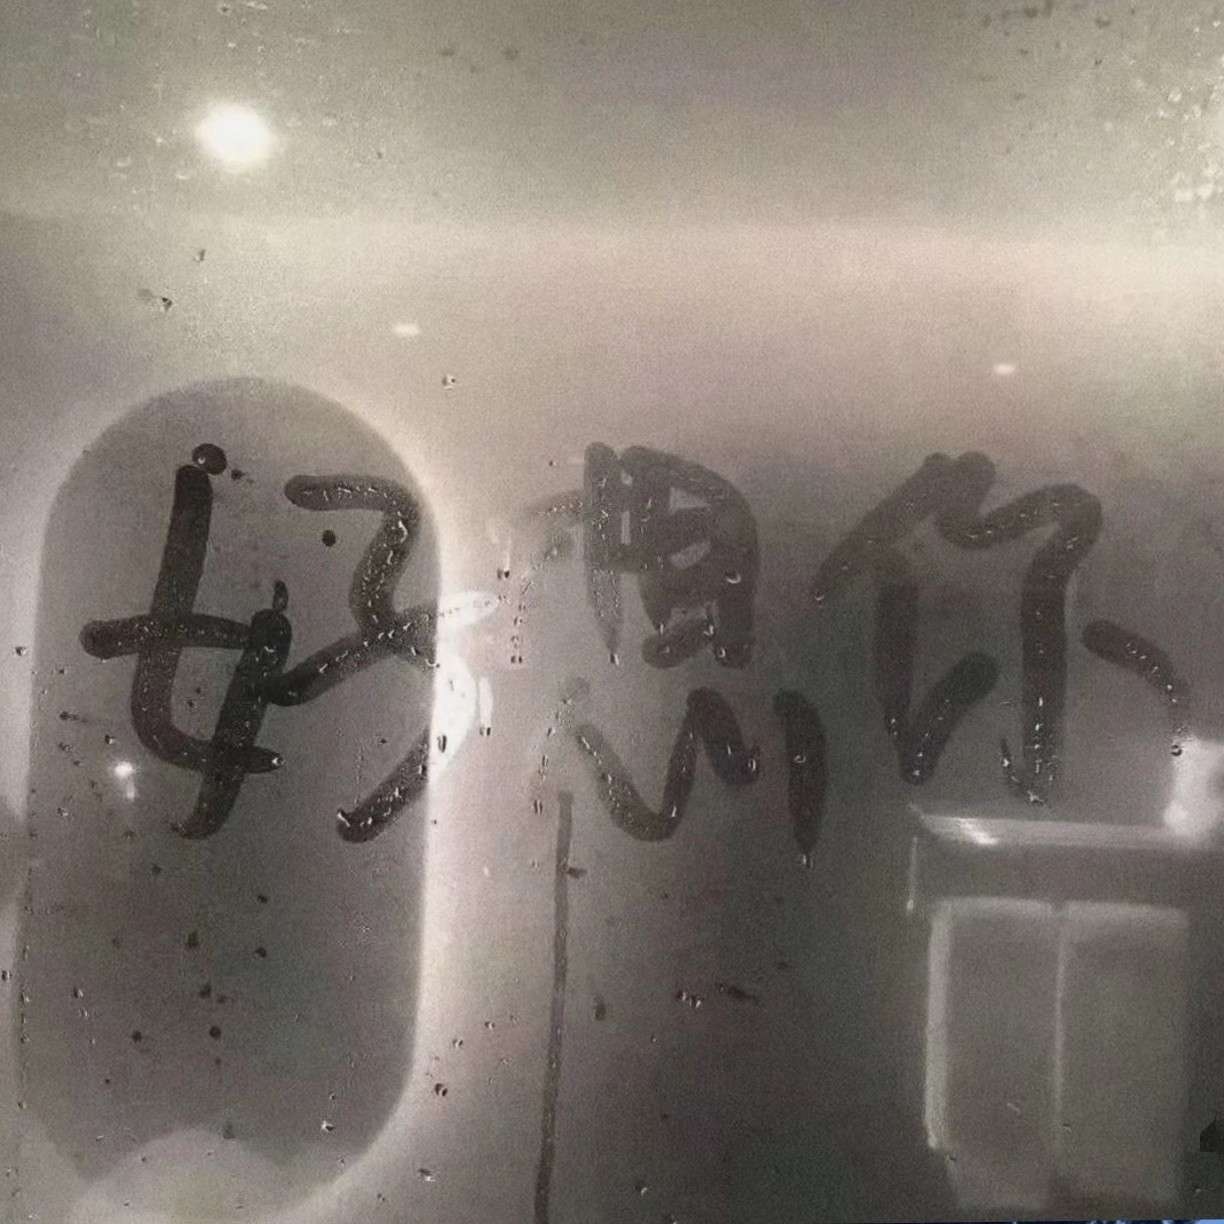 好想你